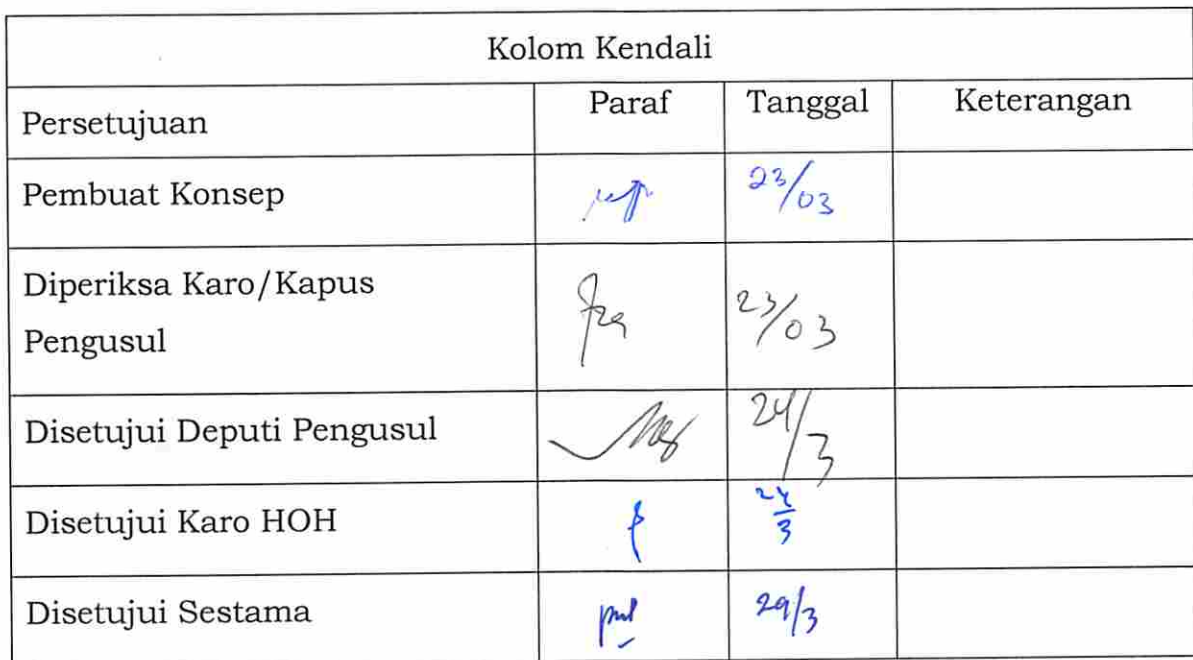 Kolom Kendali
Persetujuan Paraf Tanggal Keterangan
Pembuat Konsep 23/03
Diperiksa Karo/Kapus
Pengusul 23/03
Disetujui Deputi Pengusul 24/3
Disetujui Karo HOH 24/3
Disetujui Sestama 29/3